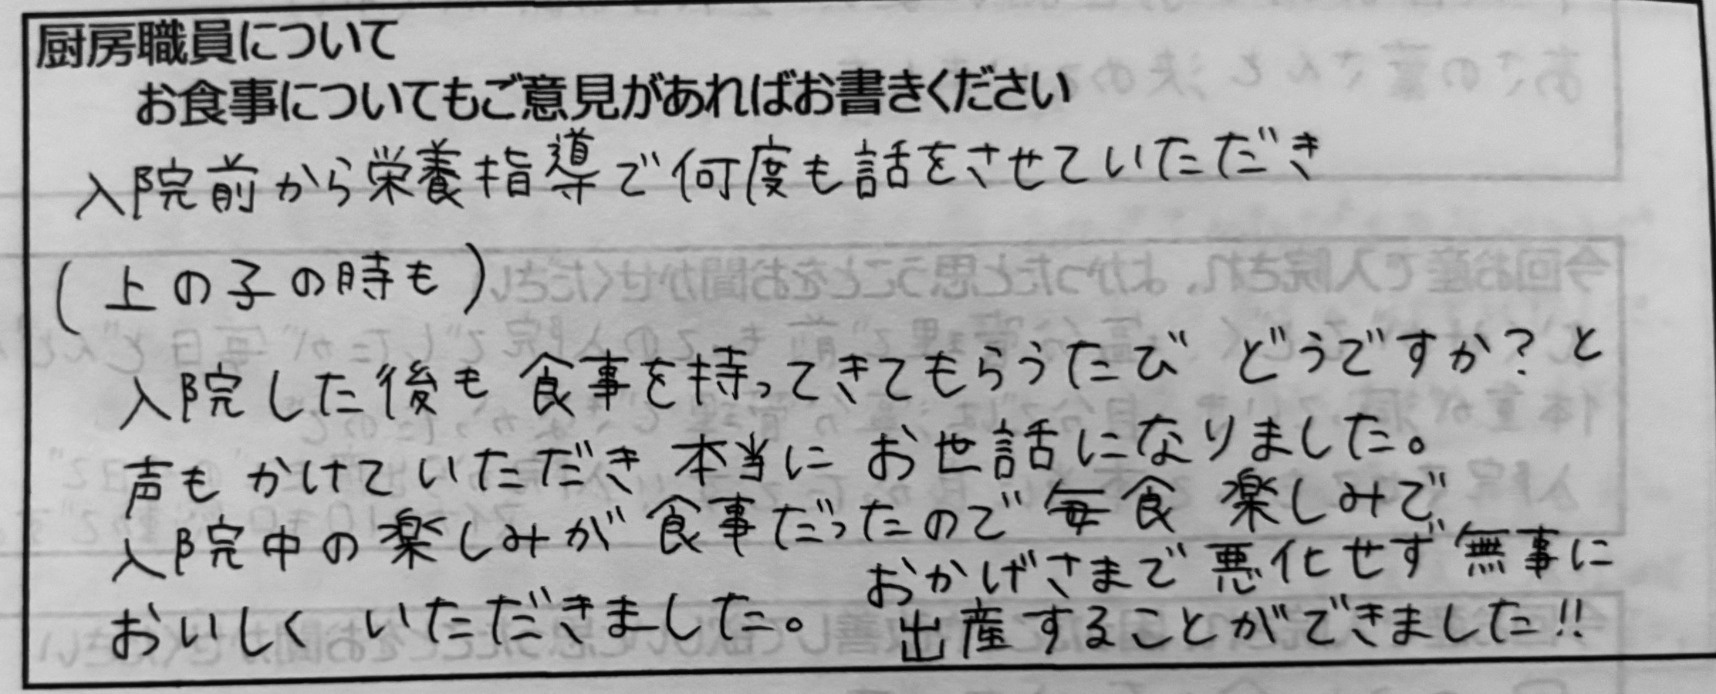 厨房職員について
お食事についてもご意見があればお書きください
入院前から栄養指導で何度も話をさせていただき
(上の子の時も)
入院した後も食事を持ってきてもらうたび どうですか?と
声もかけていただき本当に お世話になりました。
入院中の楽しみが食事だったので毎食 楽しみで
おいしく いただきました。
おかげさまで悪化せず無事に
出産することができました!!